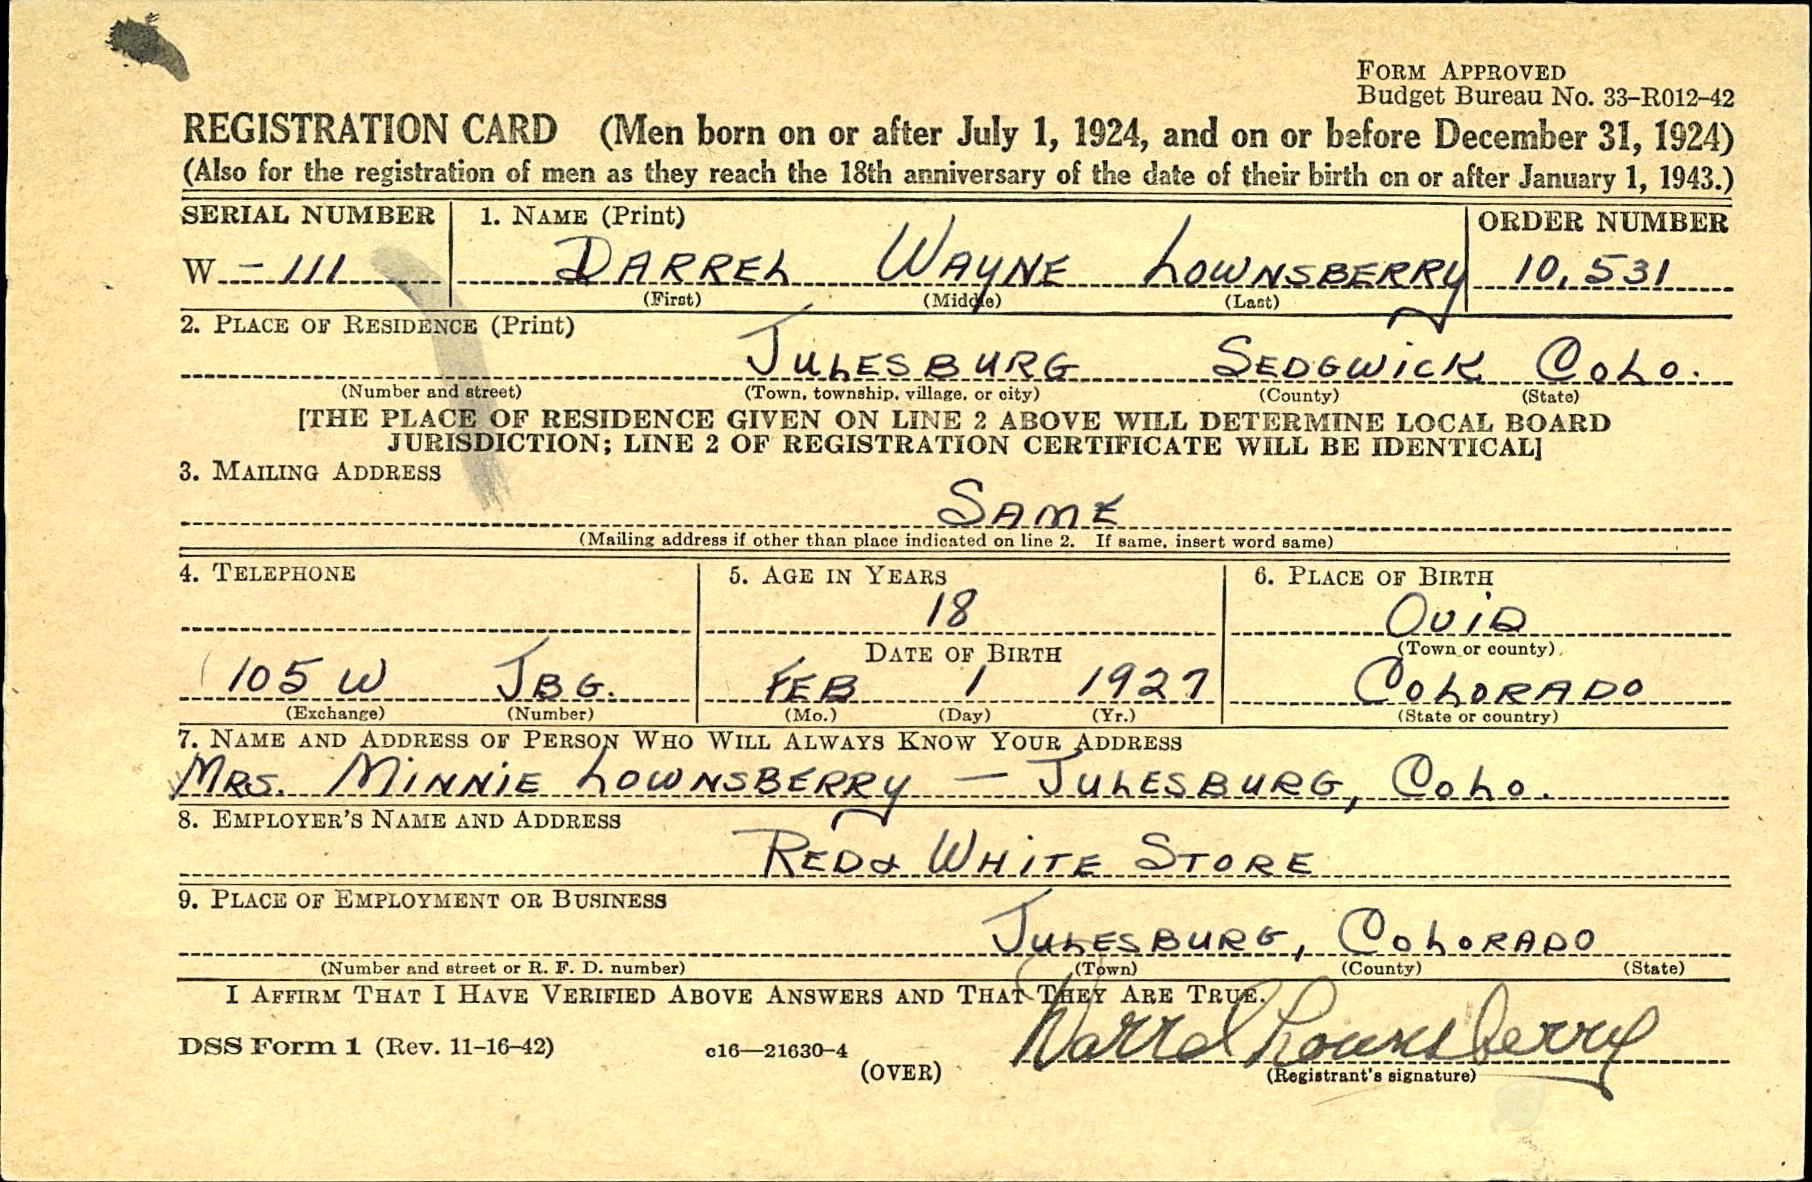 FORM APPROVED
Budget Bureau No. 33-R012-42
REGISTRATION CARD (Men born on or after July 1, 1924, and on or before December 31, 1924)
(Also for the registration of men as they reach the 18th anniversary of the date of their birth on or after January 1, 1943.)
SERIAL NUMBER 1. NAME (Print) ORDER NUMBER
W - 111 DARREL WAYNE LOWNSBERRY 10,531
(First) (Middle) (Last)
2. PLACE OF RESIDENCE (Print)
JULESBURG SEDGWICK COLO.
(Number and street) (Town, township, village, or city) (County) (State)
[THE PLACE OF RESIDENCE GIVEN ON LINE 2 ABOVE WILL DETERMINE LOCAL BOARD
JURISDICTION; LINE 2 OF REGISTRATION CERTIFICATE WILL BE IDENTICAL]
3. MAILING ADDRESS
SAME
(Mailing address if other than place indicated on line 2. If same, insert word same)
4. TELEPHONE 5. AGE IN YEARS 6. PLACE OF BIRTH
18 OVID
DATE OF BIRTH (Town or county)
105 W JBG. FEB 1 1927 COLORADO
(Exchange) (Number) (Mo.) (Day) (Yr.) (State or country)
7. NAME AND ADDRESS OF PERSON WHO WILL ALWAYS KNOW YOUR ADDRESS
MRS. MINNIE LOWNSBERRY — JULESBURG, COLO.
8. EMPLOYER'S NAME AND ADDRESS
RED & WHITE STORE
9. PLACE OF EMPLOYMENT OR BUSINESS
JULESBURG, COLORADO
(Number and street or R. F. D. number) (Town) (County) (State)
I AFFIRM THAT I HAVE VERIFIED ABOVE ANSWERS AND THAT THEY ARE TRUE.
DSS Form 1 (Rev. 11-16-42) c16—21630-4 Darrel Lownsberry
(OVER) (Registrant's signature)